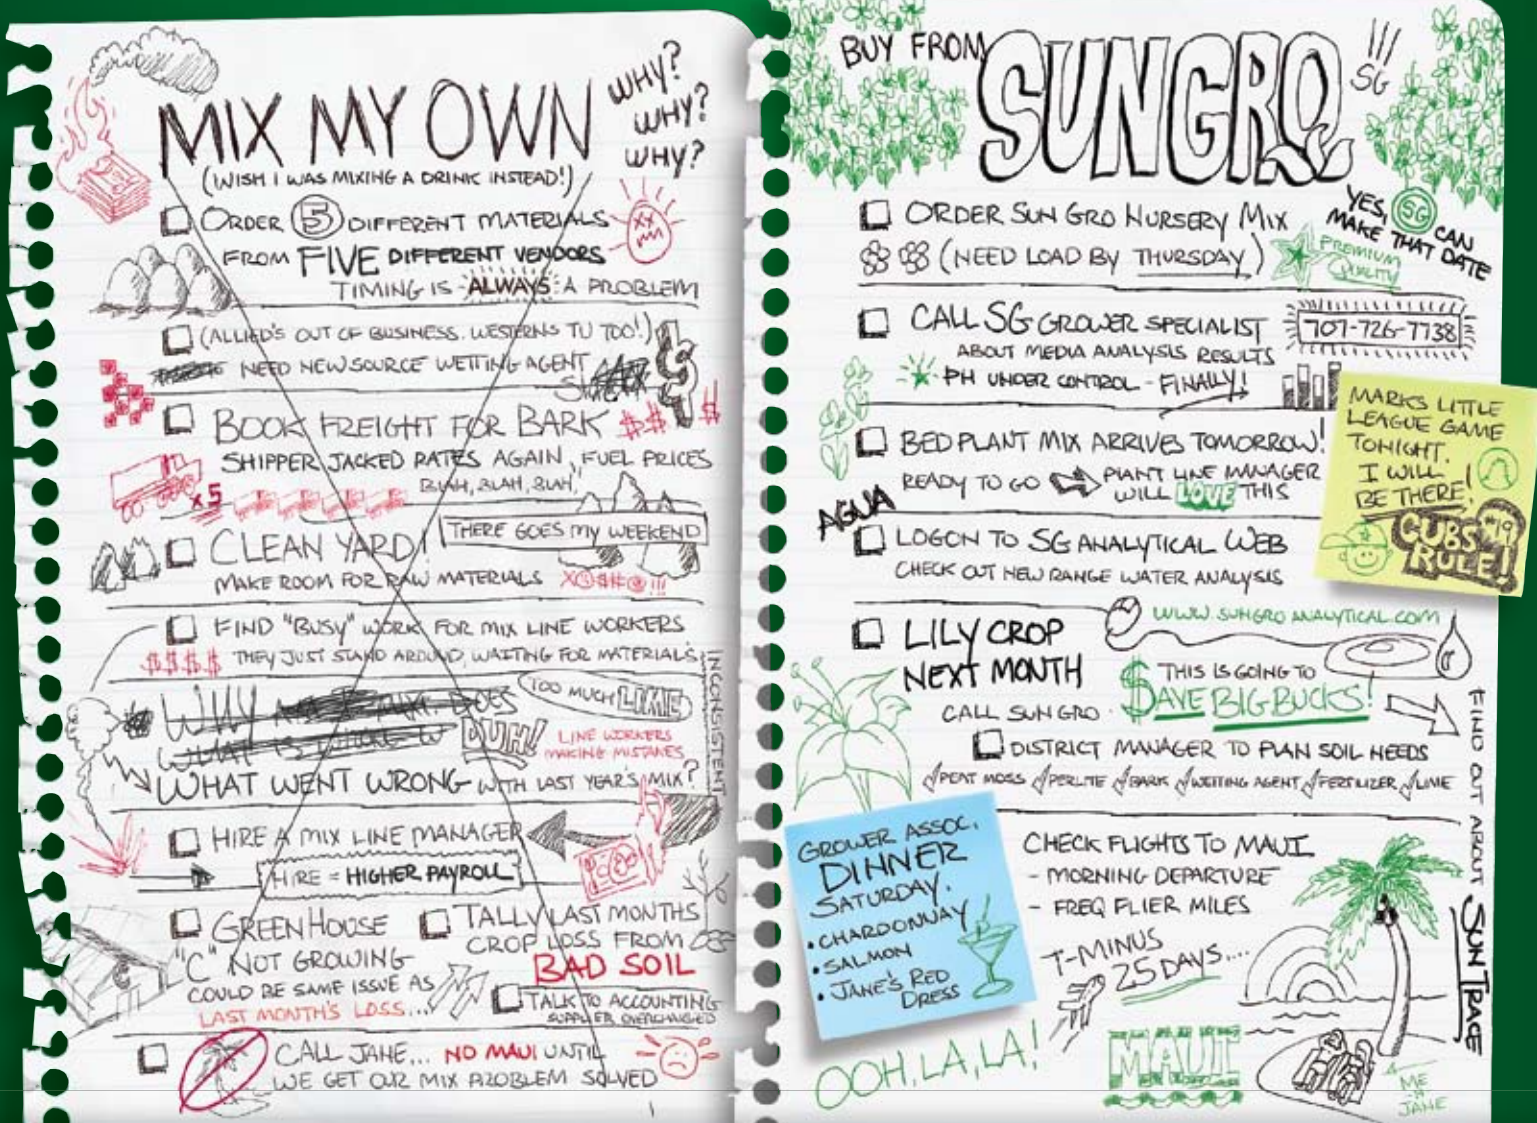 MIX MY OWN
WHY?
WHY?
WHY?
(WISH I WAS MIXING A DRINK INSTEAD!)
ORDER 5 DIFFERENT MATERIALS
FROM FIVE DIFFERENT VENDORS
TIMING IS ALWAYS A PROBLEM
(ALLIED'S OUT OF BUSINESS. WESTERNS TU TOO!)
NEED NEW SOURCE WETTING AGENT
BOOK FREIGHT FOR BARK $$ $
SHIPPER JACKED RATES AGAIN, FUEL PRICES
BLAH, BLAH, BLAH,
X5
THERE GOES MY WEEKEND
CLEAN YARD!
MAKE ROOM FOR RAW MATERIALS
FIND "BUSY" WORK FOR MIX LINE WORKERS
$$$$ THEY JUST STAND AROUND, WAITING FOR MATERIALS
INCONSISTENT
TOO MUCH LIME
WHY DOES
WHAT IS
DUH!
LINE WORKERS
MAKING MISTAKES
WHAT WENT WRONG WITH LAST YEAR'S MIX?
HIRE A MIX LINE MANAGER
HIRE = HIGHER PAYROLL
GREENHOUSE
"C" NOT GROWING
COULD BE SAME ISSUE AS
LAST MONTH'S LOSS...
C
TALLY LAST MONTHS
CROP LOSS FROM
BAD SOIL
TALK TO ACCOUNTING
SUPPLIER OVERCHARGED
CALL JANE... NO MAUI UNTIL
WE GET OUR MIX PROBLEM SOLVED
BUY FROM SUNGRO
!!!
SG
ORDER SUN GRO NURSERY MIX
(NEED LOAD BY THURSDAY)
YES, SG CAN
MAKE THAT DATE
PREMIUM
QUALITY
CALL SG GROWER SPECIALIST
707-726-7738
ABOUT MEDIA ANALYSIS RESULTS
PH UNDER CONTROL - FINALLY!
MARKS LITTLE
LEAGUE GAME
TONIGHT.
I WILL
BE THERE!
CUBS #19
RULE!
BED PLANT MIX ARRIVES TOMORROW!
READY TO GO
PLANT LINE MANAGER
WILL LOVE THIS
AGUA
LOGON TO SG ANALYTICAL WEB
CHECK OUT NEW RANGE WATER ANALYSIS
WWW.SUNGROANALYTICAL.COM
LILY CROP
NEXT MONTH
THIS IS GOING TO
$AVE BIG BUCKS!
CALL SUN GRO
DISTRICT MANAGER TO PLAN SOIL NEEDS
PEAT MOSS PERLITE BARK WETTING AGENT FERTILIZER LIME
FIND OUT ABOUT SUNTRACE
GROWER ASSOC.
DINNER
SATURDAY.
• CHARDONNAY
• SALMON
• JANE'S RED
DRESS
OOH, LA, LA!
CHECK FLIGHTS TO MAUI
- MORNING DEPARTURE
- FREQ FLIER MILES
T-MINUS
25 DAYS....
MAUI
ME
-N-
JANE